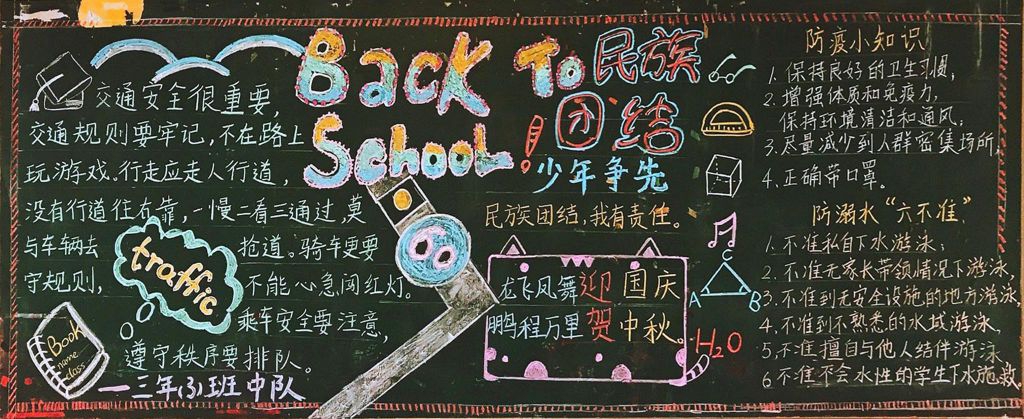 BacK To
School!
民族
团结
少年争先
民族团结,我有责任。
龙飞凤舞迎国庆
鹏程万里贺中秋。
交通安全很重要,
交通规则要牢记,不在路上
玩游戏.行走应走人行道,
没有行道往右靠,一慢二看三通过,莫
与车辆去抢道。骑车更要
守规则,不能心急闯红灯。
乘车安全要注意,
遵守秩序要排队。
traffic
Book
name
class
一三年(3)班中队
防疫小知识
1.保持良好的卫生习惯,
2.增强体质和免疫力,
保持环境清洁和通风,
3.尽量减少到人群密集场所,
4.正确带口罩。
防溺水“六不准”
1.不准私自下水游泳;
2.不准无家长带领情况下游泳,
3.不准到无安全设施的地方游泳,
4.不准到不熟悉的水域游泳,
5.不准擅自与他人结伴游泳,
6不准不会水性的学生下水施救。
C
A B
H₂O